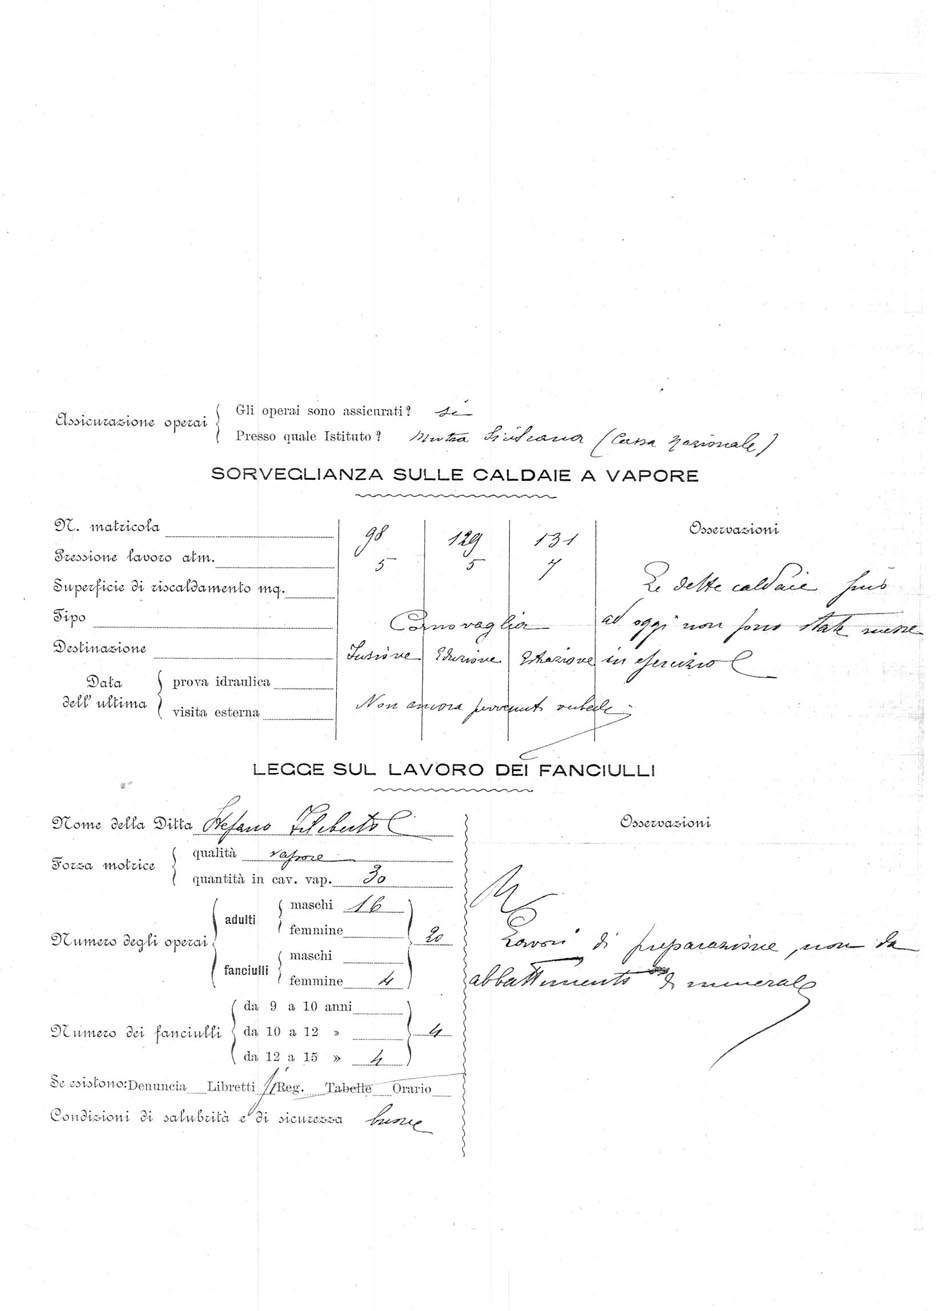 Assicurazione operai
Gli operai sono assicurati? si
Presso quale Istituto? Mutua Siciliana (Cassa Nazionale)
SORVEGLIANZA SULLE CALDAIE A VAPORE
N. matricola 98 129 131
Pressione lavoro atm. 5 5 7
Superficie di riscaldamento mq.
Tipo Cornovaglia
Destinazione Eduzione Estrazione
Data dell' ultima
prova idraulica
visita esterna Non ancora
Osservazioni
Le dette caldaie fino
ad oggi non sono state messe
in esercizio
LEGGE SUL LAVORO DEI FANCIULLI
Nome della Ditta Stefano Filiberto
Forza motrice
qualità vapore
quantità in cav. vap. 30
Numero degli operai
adulti
maschi 16
femmine
fanciulli
maschi
femmine 4
20
Numero dei fanciulli
da 9 a 10 anni
da 10 a 12 »
da 12 a 15 » 4
4
Se esistono: Denuncia Libretti si Reg. Tabelle Orario
Condizioni di salubrità e di sicurezza buone
Osservazioni
Lavori di preparazione, non da
abbattimento di minerale